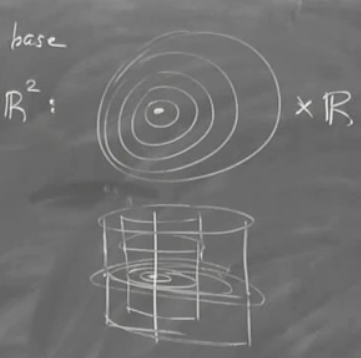 base
ℝ²: × ℝ